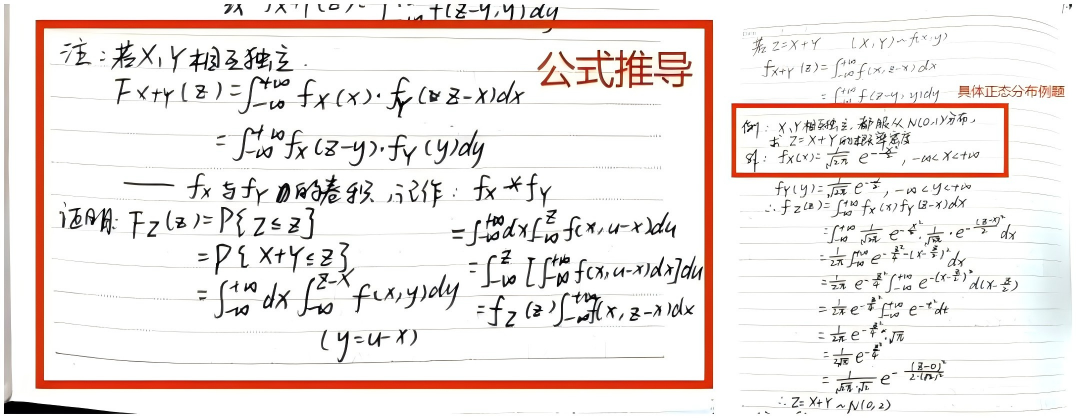 注：若X,Y相互独立.
公式推导
F_{X+Y}(z)=∫_{-∞}^{+∞} f_X(x)·f_Y(z-x)dx
=∫_{-∞}^{+∞} f_X(z-y)·f_Y(y)dy
—— f_X与f_Y的卷积,记作: f_X*f_Y
证明: F_Z(z)=P{Z≤z}
=P{X+Y≤z}
=∫_{-∞}^{+∞}dx∫_{-∞}^{z-x} f(x,y)dy
(y=u-x)
=∫_{-∞}^{+∞}dx∫_{-∞}^{z} f(x,u-x)du
=∫_{-∞}^{z}[∫_{-∞}^{+∞}f(x,u-x)dx]du
=f_Z(z)∫_{-∞}^{+∞}f(x,z-x)dx
若Z=X+Y (X,Y)~f(x,y)
f_{X+Y}(z)=∫_{-∞}^{+∞}f(x,z-x)dx
=∫_{-∞}^{+∞}f(z-y,y)dy
具体正态分布例题
例：X,Y相互独立,都服从N(0,1)分布,
求Z=X+Y的概率密度
解：f_X(x)=\frac{1}{\sqrt{2π}}e^{-\frac{x^2}{2}},-∞<x<+∞
f_Y(y)=\frac{1}{\sqrt{2π}}e^{-\frac{y^2}{2}},-∞<y<+∞
∴f_Z(z)=∫_{-∞}^{+∞}f_X(x)f_Y(z-x)dx
=∫_{-∞}^{+∞}\frac{1}{\sqrt{2π}}e^{-\frac{x^2}{2}}·\frac{1}{\sqrt{2π}}·e^{-\frac{(z-x)^2}{2}}dx
=\frac{1}{2π}∫_{-∞}^{+∞}e^{-\frac{z^2}{4}-(x-\frac{z}{2})^2}dx
=\frac{1}{2π}e^{-\frac{z^2}{4}}∫_{-∞}^{+∞}e^{-(x-\frac{z}{2})^2}d(x-\frac{z}{2})
=\frac{1}{2π}e^{-\frac{z^2}{4}}∫_{-∞}^{+∞}e^{-t^2}dt
=\frac{1}{2π}e^{-\frac{z^2}{4}}·\sqrt{π}
=\frac{1}{2\sqrt{π}}e^{-\frac{z^2}{4}}
=\frac{1}{\sqrt{2π}·\sqrt{2}}e^{-\frac{(z-0)^2}{2·(\sqrt{2})^2}}
∴Z=X+Y~N(0,2)